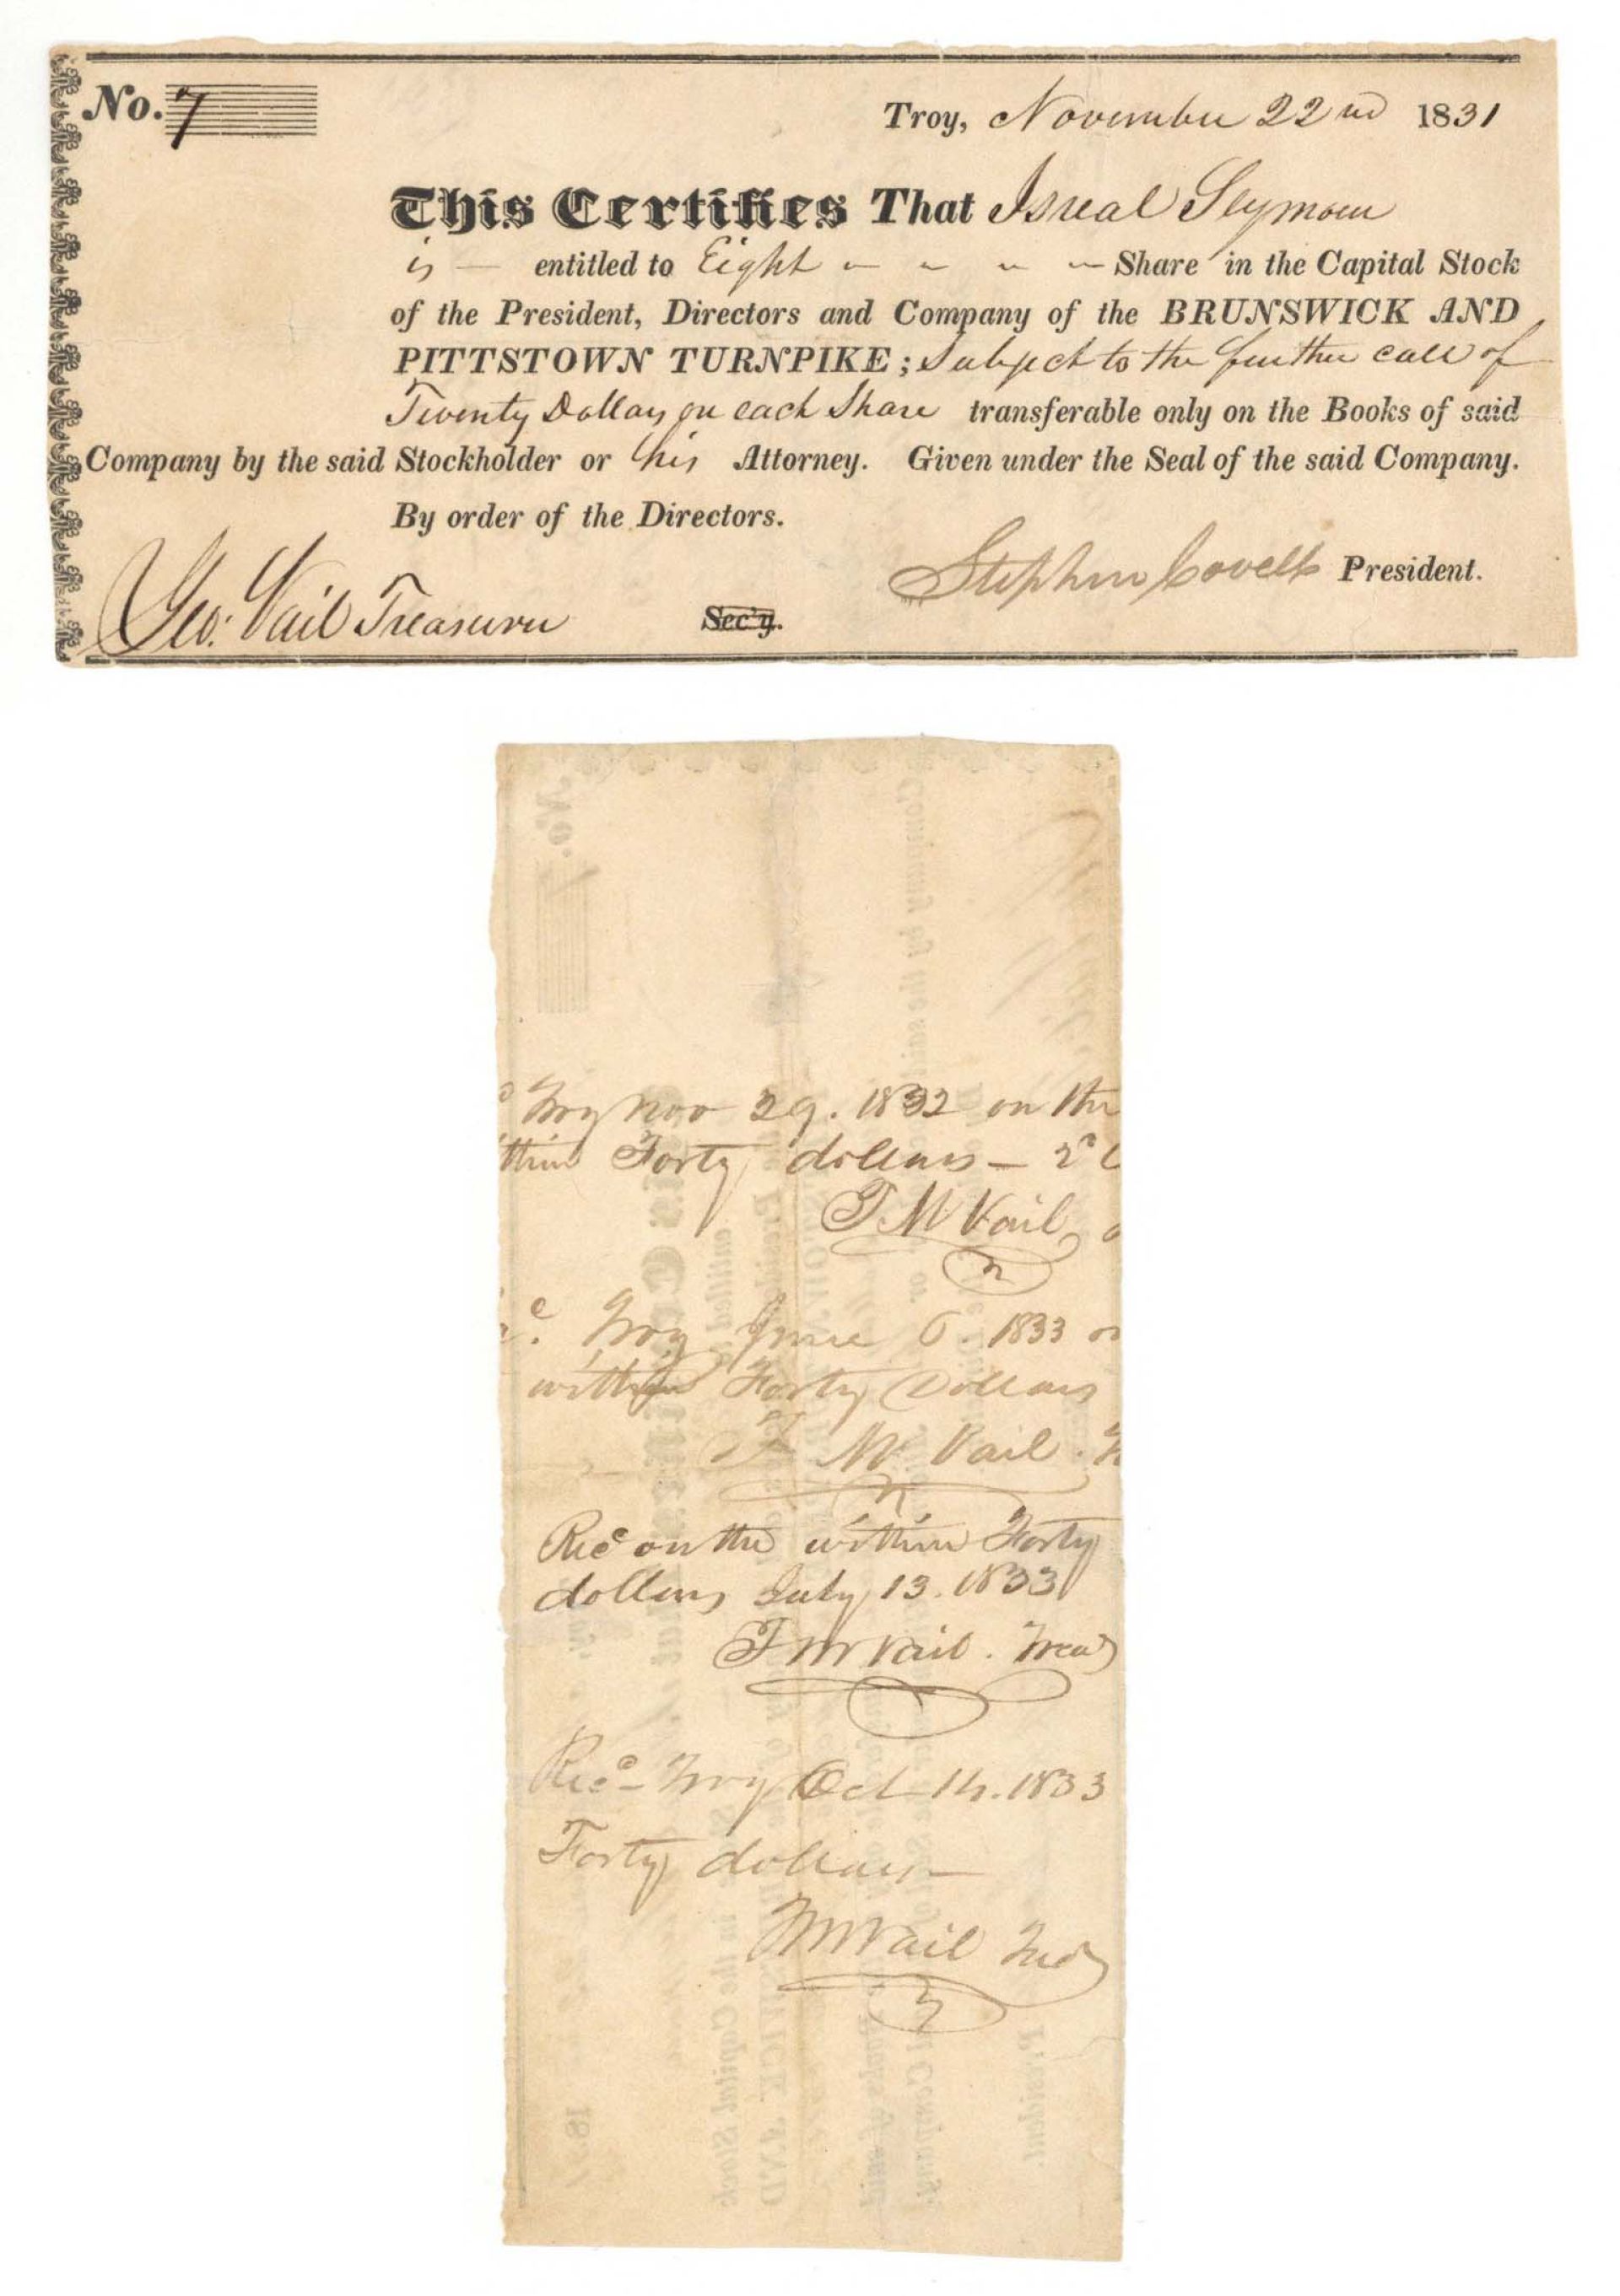 No. 7
Troy, November 22nd 1831
This Certifies That Isreal Seymour
is — entitled to Eight - - - - Share in the Capital Stock
of the President, Directors and Company of the BRUNSWICK AND
PITTSTOWN TURNPIKE; Subject to the further call of
Twenty Dollars on each Share transferable only on the Books of said
Company by the said Stockholder or his Attorney. Given under the Seal of the said Company.
By order of the Directors.
Stephen Covell President.
Geo: Vail Treasurer Sec'y.
Troy Nov 29. 1832 on the
thin Forty dollars —
T. M Vail
Troy June 6. 1833
within Forty Dollars
T M Vail.
Recd on the within Forty
dollars July 13. 1833
T M Vail. Treas
Recd Troy Oct 14. 1833
Forty dollars —
T M Vail Treas